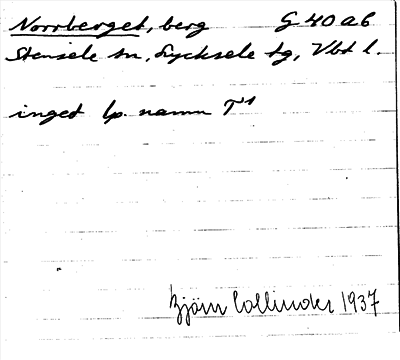 Norrberget, berg G 40 a b
Stensele sn, Lycksele tg, Vbt l.
inget lp. namn T¹
Björn Collinder 1937